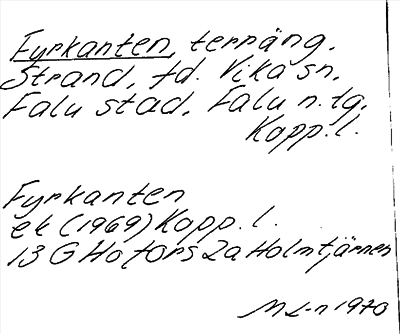 Fyrkanten, terräng.
Strand, fd. Vika sn,
Falu stad, Falu n. tg.
Kopp. l.
Fyrkanten
ek (1969) Kopp. l.
13 G Hofors 2a Holmtjärnen
M L-n 1970